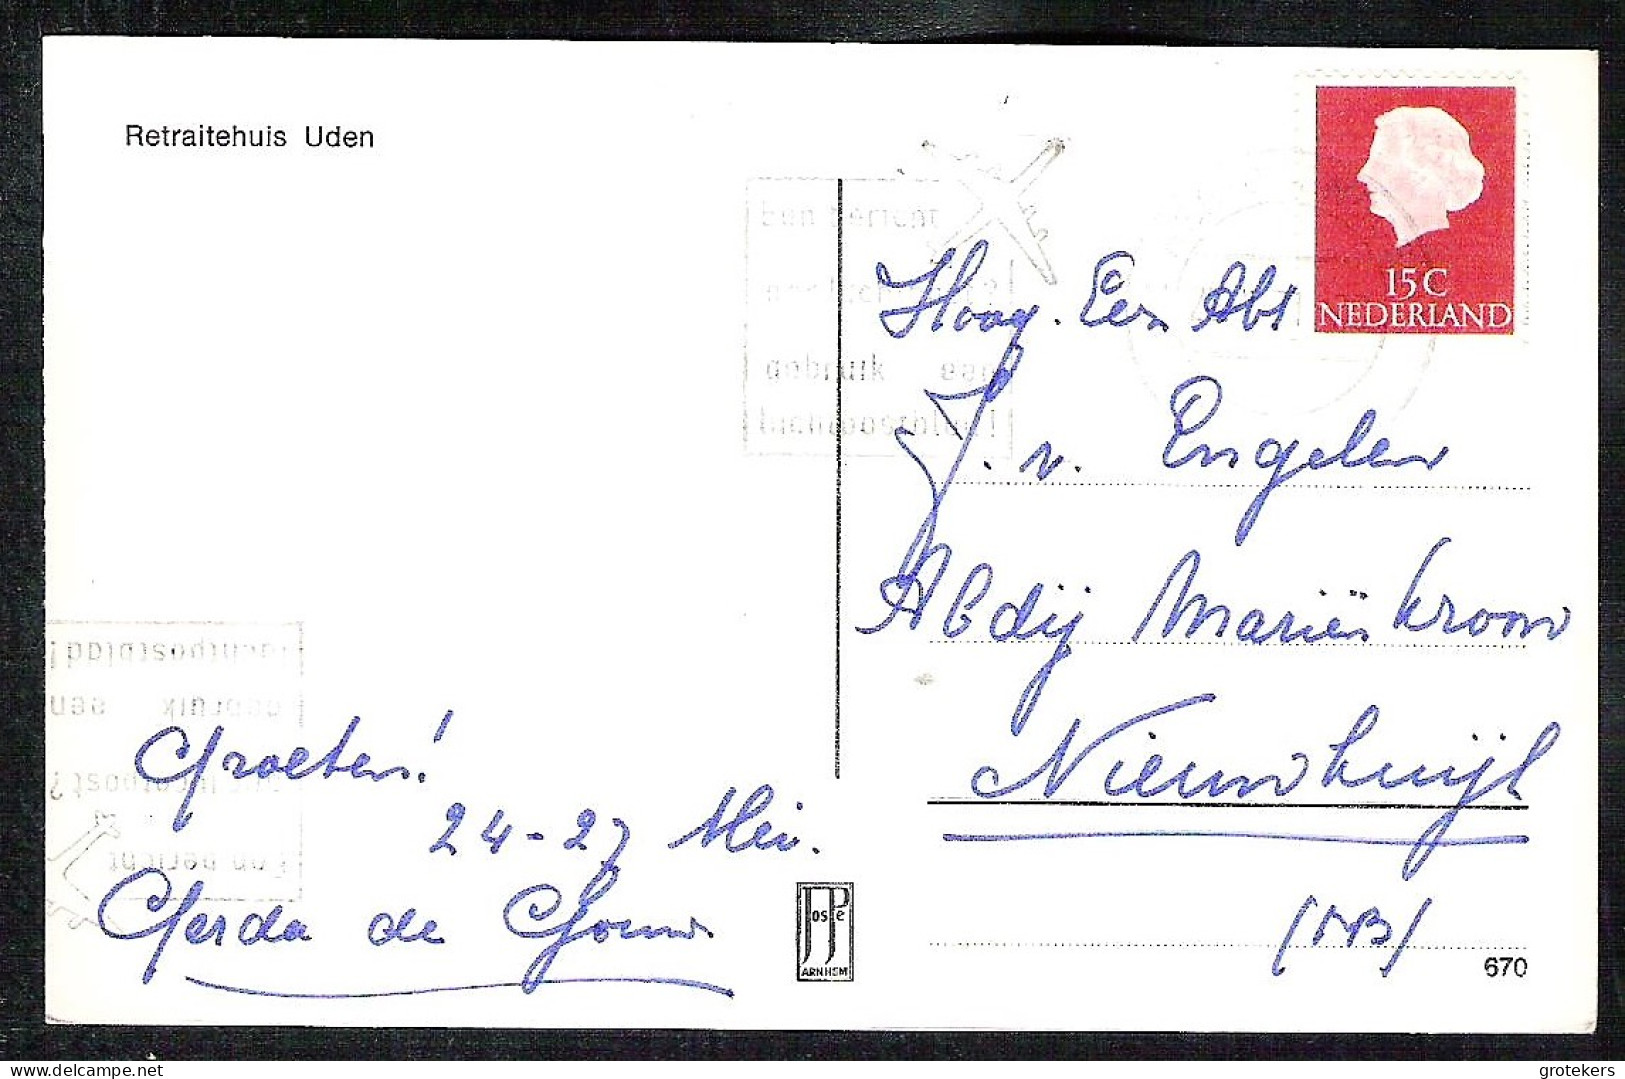 Retraitehuis Uden
Een bericht
gebruik een
luchtpostblad!
15 C
NEDERLAND
Hoog. Eerw Abt
J. v. Engelen
Abdij Mariënkroon
Nieuwkuijk
(NB)
luchtpostblad!
gebruik een
luchtpost?
Een bericht
Groeten!
24-27 Mei.
Gerda de Gouw
JosPe
ARNHEM
670
delcampe.net
grotekers